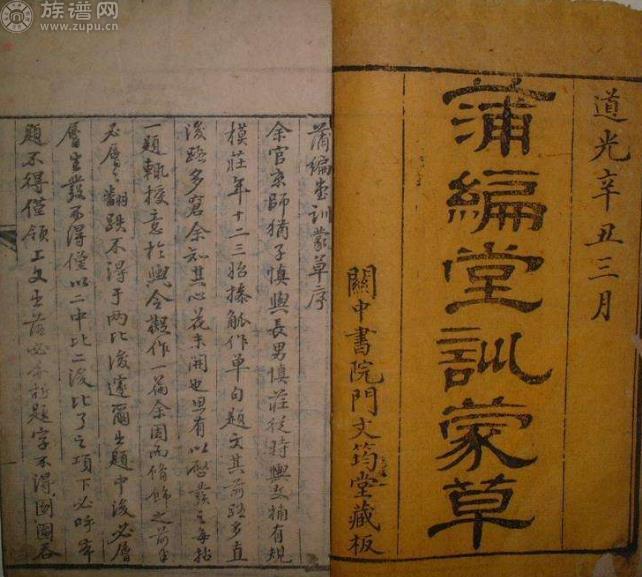 道光辛丑三月
蒲編堂訓蒙草
關中書院門文筠堂藏板
蒲編堂訓蒙草序
余官京師猶子慎興長男慎莊從時興文稍有規
模莊年十二三始操觚作單句題文其前路多直
後路多窘余知其心花未開也思有以啟發之每拈
一題輒授意於興令擬作一篇余因而脩飾之前半
必層層翻跌不得于兩比後遽爾出題中後必層
層生發不得僅以二中比二後比了之項下必呼本
題不得僅領上文出落必
題字不得囫圇吞
族谱网
www.zupu.cn